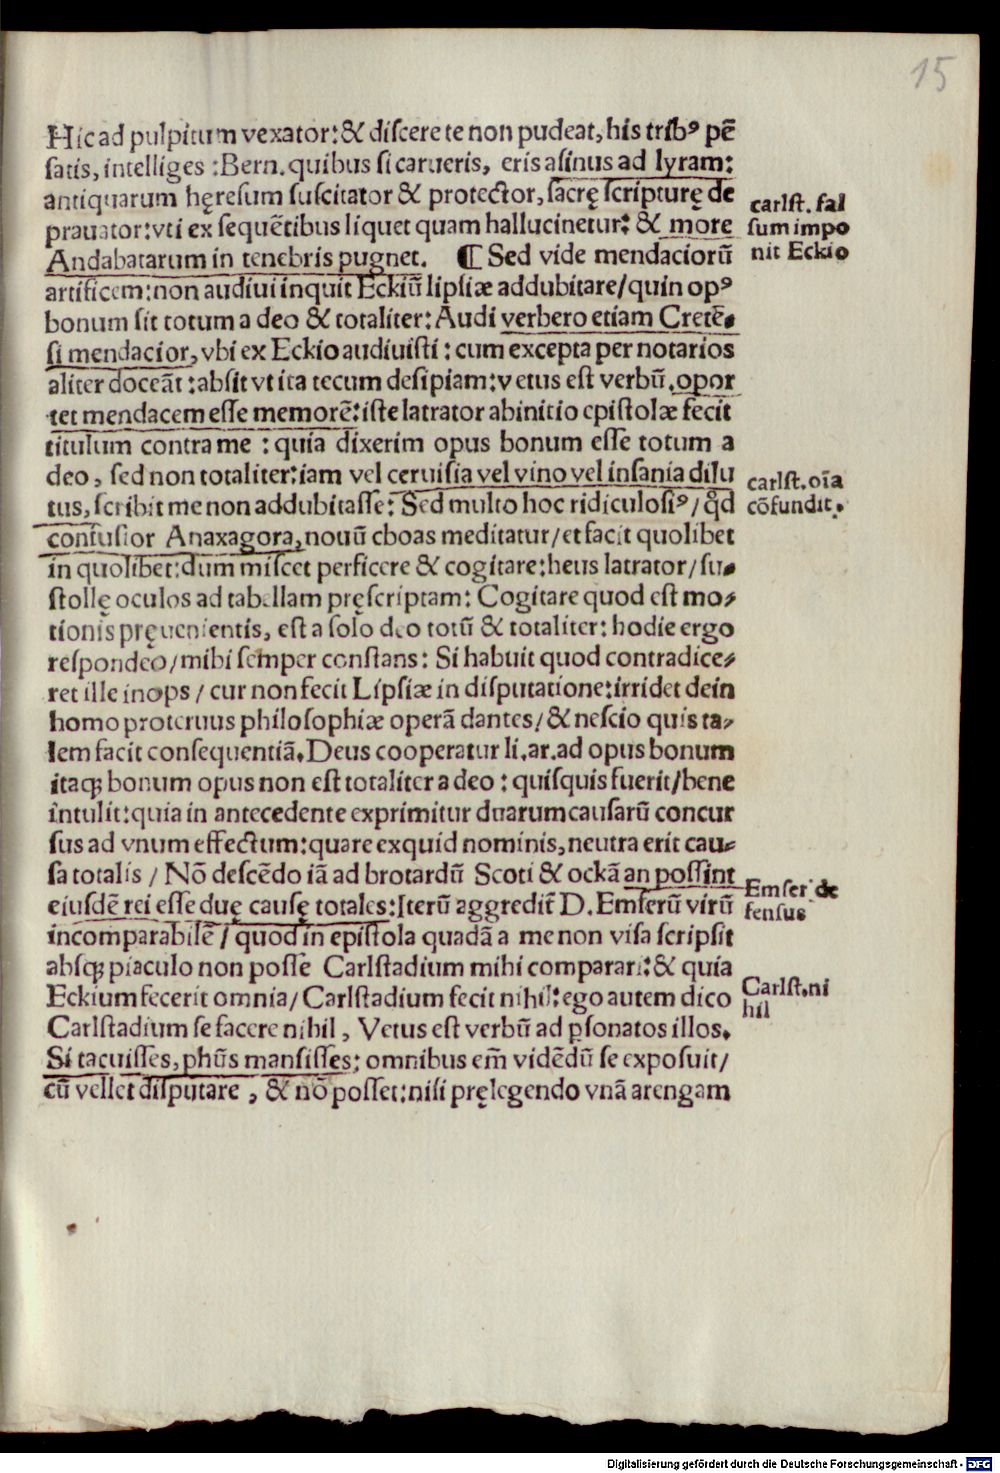 15
Hic ad pulpitum vexator: & discere te non pudeat, his trib⁹ pē
satis, intelliges : Bern. quibus si carueris, eris asinus ad lyram:
antiquarum hęresum suscitator & protector, sacrę scripturę de
prauator: vti ex sequētibus liquet quam hallucinetur: & more
Andabatarum in tenebris pugnet. ¶ Sed vide mendaciorū
artificem: non audiui inquit Eckiū lipsiæ addubitare/ quin op⁹
bonum sit totum a deo & totaliter: Audi verbero etiam Cretē⸗
si mendacior, vbi ex Eckio audiuisti : cum excepta per notarios
aliter doceāt : absit vt ita tecum desipiam: vetus est verbū. opor
tet mendacem esse memorē: iste latrator ab initio epistolæ fecit
titulum contra me : quia dixerim opus bonum esse totum a
deo, sed non totaliter: iam vel ceruisia vel vino vel insania dilu
tus, scribit me non addubitasse: Sed multo hoc ridiculosi⁹/ qd̄
confusior Anaxagora, nouū choas meditatur/ et facit quolibet
in quolibet: dum miscet perficere & cogitare: heus latrator/ su⸗
stollę oculos ad tabellam pręscriptam: Cogitare quod est mo⸗
tionis pręuenientis, est a solo deo totū & totaliter: hodie ergo
respondeo/ mihi semper constans: Si habuit quod contradice⸗
ret ille inops / cur non fecit Lipsiæ in disputatione: irridet dein
homo proteruus philosophiæ operā dantes/ & nescio quis ta⸗
lem facit consequentiā. Deus cooperatur li. ar. ad opus bonum
itaqꝫ bonum opus non est totaliter a deo : quisquis fuerit/ bene
intulit: quia in antecedente exprimitur duarum causarū concur
sus ad vnum effectum: quare ex quid nominis, neutra erit cau⸗
sa totalis / Nō descēdo iā ad brotardū Scoti & ockā an possint
eiusdē rei esse duę causę totales: Iterū aggredit̄ D. Emserū virū
incomparabilē / quod in epistola quadā a me non visa scripsit
absqꝫ piaculo non posse Carlstadium mihi comparari: & quia
Eckium fecerit omnia/ Carlstadium fecit nihil: ego autem dico
Carlstadium se facere nihil, Vetus est verbū ad ꝑsonatos illos.
Si tacuisses, phūs mansisses: omnibus em̄ vidēdū se exposuit/
cū vellet disputare , & nō posset: nisi pręlegendo vnā arengam
carlst. fal
sum impo
nit Eckio
carlst. oīa
cōfundit.
Emser de
fensus
Carlst. ni
hil
Digitalisierung gefördert durch die Deutsche Forschungsgemeinschaft - DFG